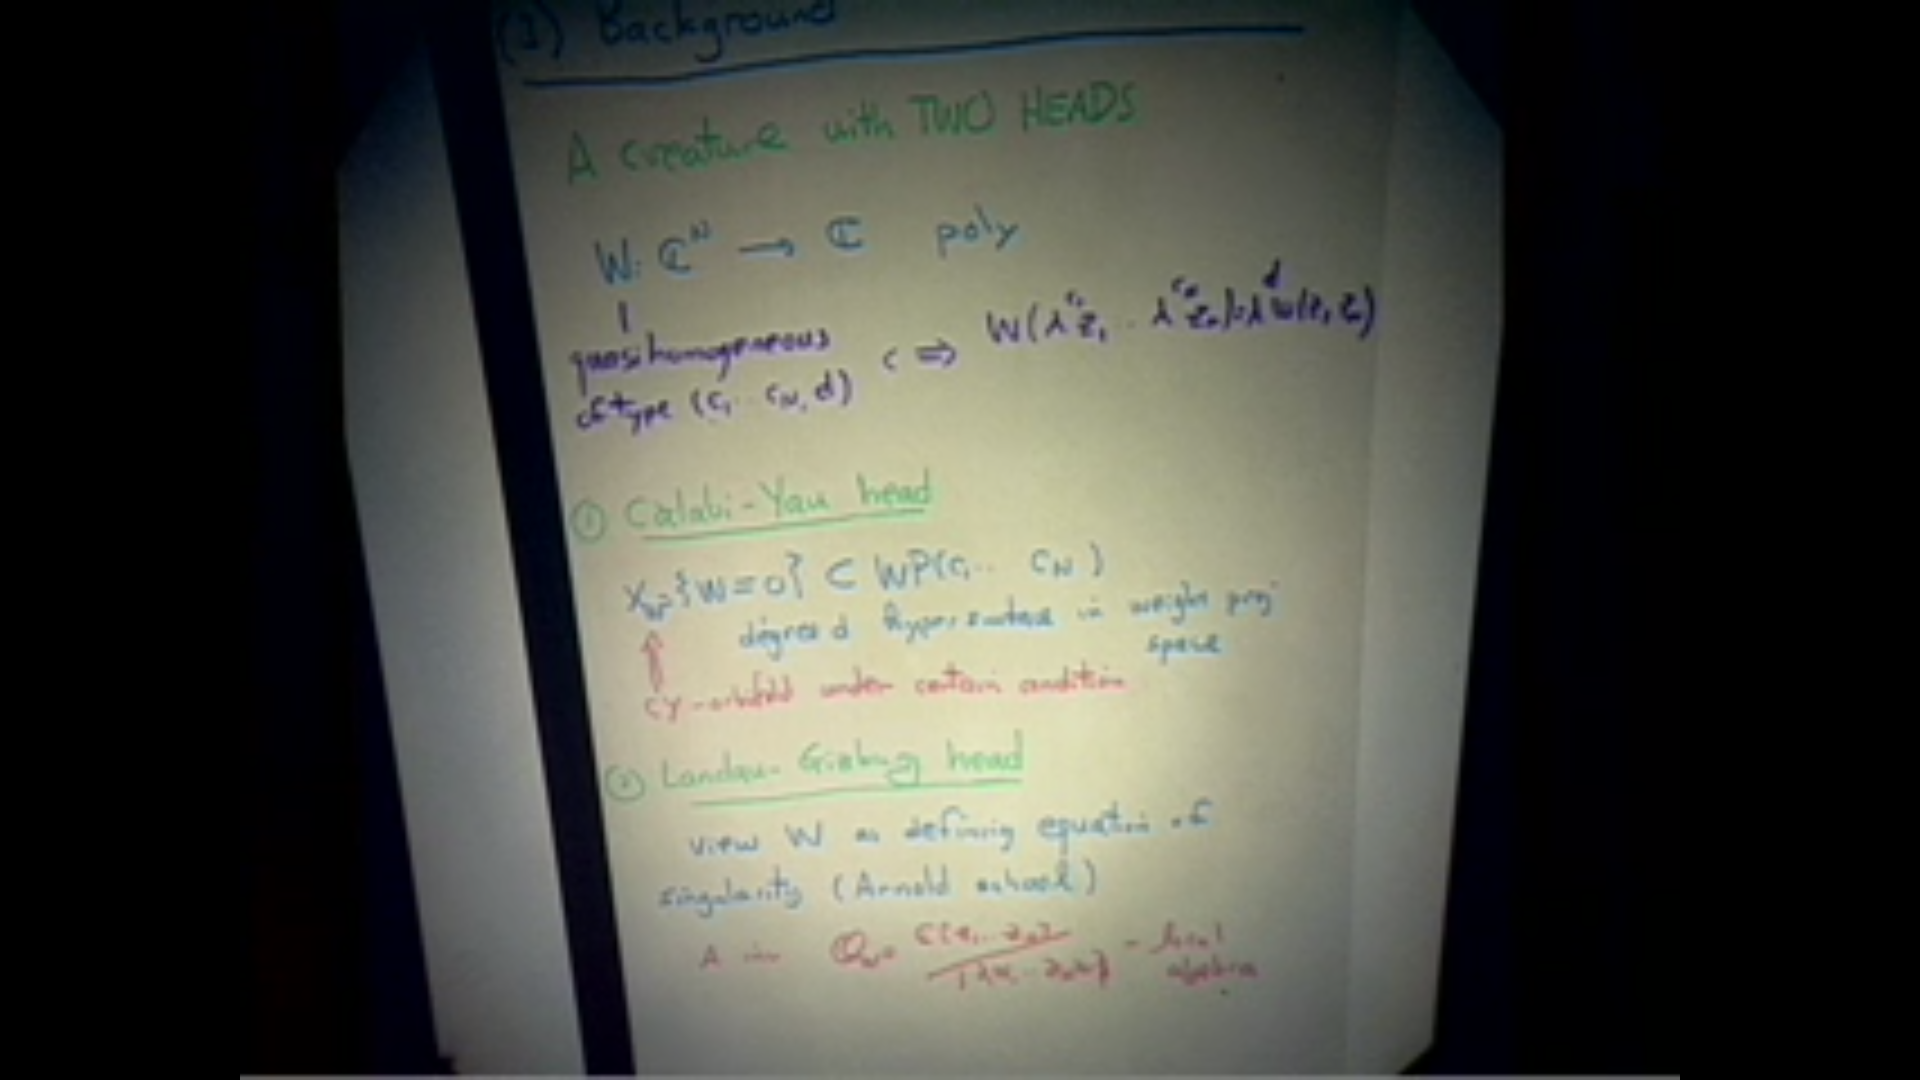 (1) Background
A creature with TWO HEADS
W: ℂᴺ → ℂ poly
quasihomogeneous
of type (c₁.. c_N, d) <=> W(λ^{c₁}z₁ .. λ^{c_N}z_N)=λ^d W(z₁ z_N)
① Calabi-Yau head
X_W={W=0} ⊂ WP(c₁.. c_N)
degree d hypersurface in weight proj
space
⇑
CY-orbifold under certain condition
② Landau-Ginzburg head
view W as defining equation of
singularity (Arnold school)
Q_W= ℂ[z₁..z_N] / (∂₁W.. ∂_N W) - local
algebra